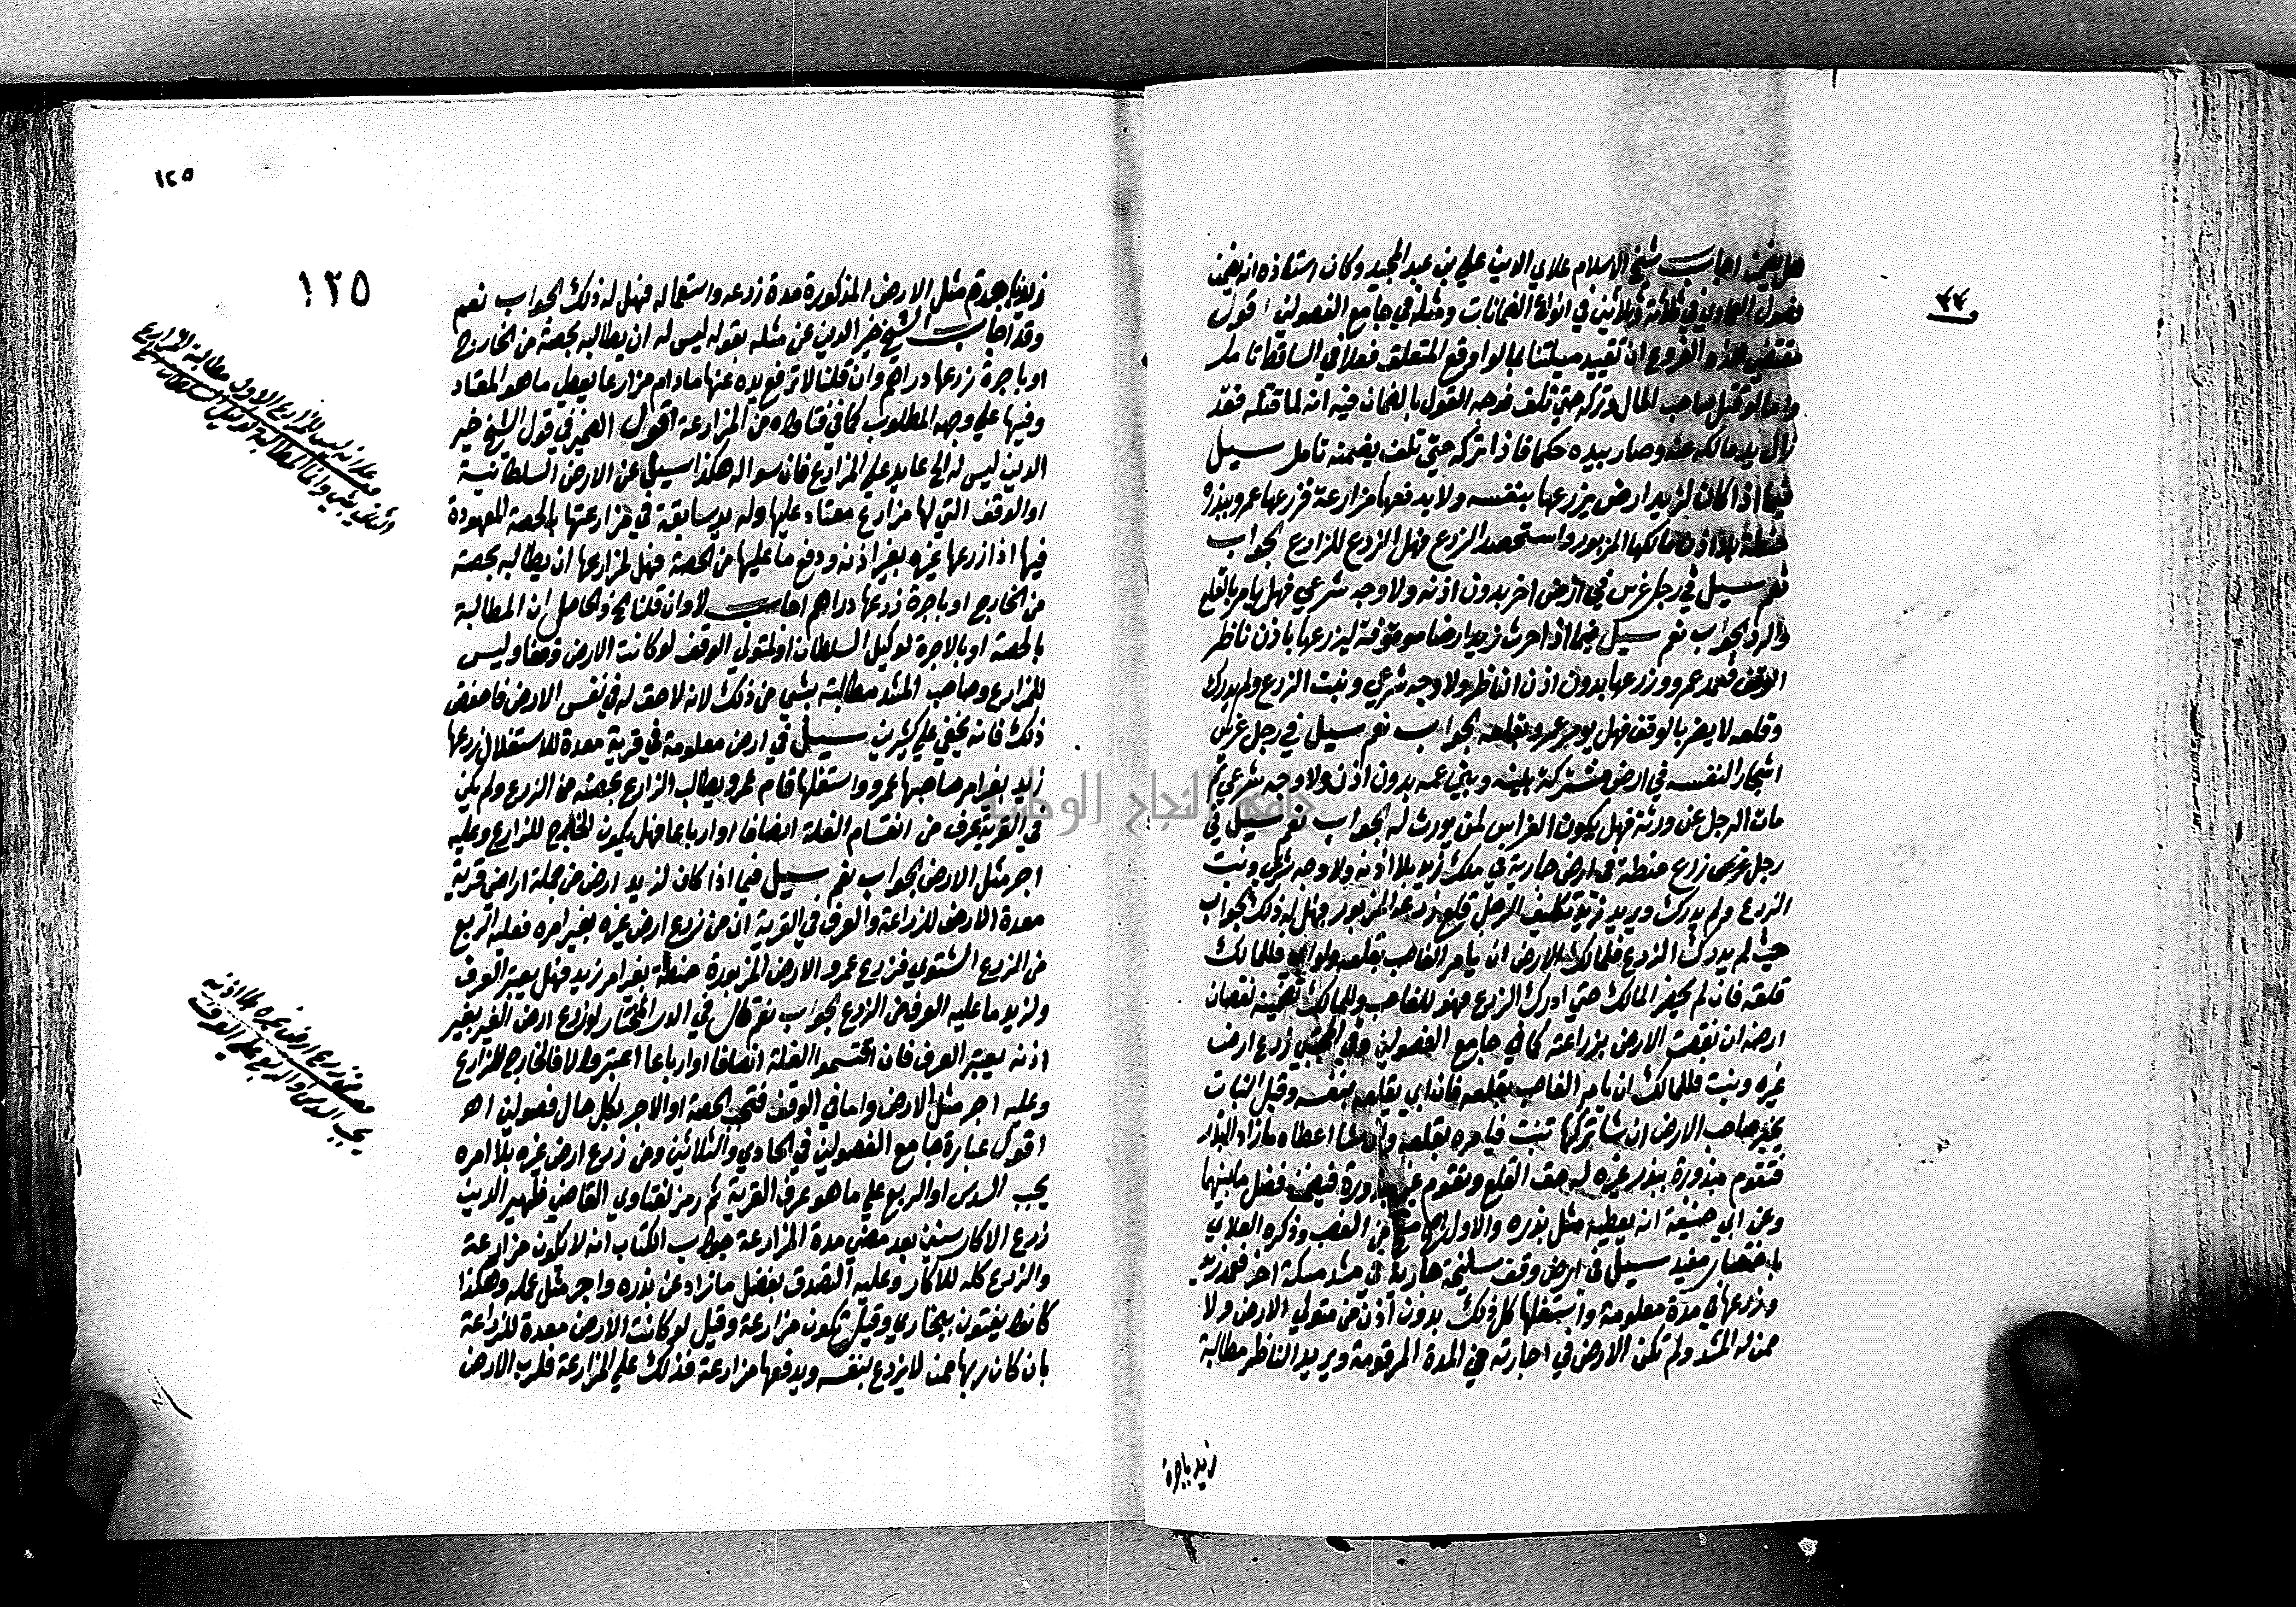 هل يضمن اجاب شيخ الاسلام علاي الدين علي بن عبد المجيد وكان استاذه انه يضمن
فصول العمادي في ثلاثة وثلاثين في انواع الضمانات ومثله في جامع الفصولين اقول
مقتضي هذه الفروع ان تقييد مسئلتنا بما لو اوقع المتعلق فعلا في الساقط تامل
واما لو قتل صاحب المال وتركه حتي تلف فوجه القول بالضمان فيه انه لما قتله فقد
زال يد مالكه عنه وصار بيده حكما فاذا تركه حتي تلف يضمنه تامل سيل
فيما اذا كان لزيد ارض يزرعها بنفسه ولا يدفعها مزارعة فزرعها عمرو ببذره
حنطة بلا اذن مالكها المزبور واستحصد الزرع فهل الزرع للزارع الجواب
نعم سيل في رجل غرس في ارض اخر بدون اذنه ولا وجه شرعي فهل يامر بالقلع
والرد الجواب نعم سيل فيما اذا حرث زيد ارضا موقوفة ليزرعها باذن ناظر
الوقف فعمد عمرو وزرعها بدون اذن الناظر ولا وجه شرعي ونبت الزرع ولم يدرك
وقلعه لا يضر بالوقف فهل يومر عمرو بقلعه الجواب نعم سيل في رجل غرس
اشجارا لنفسه في ارض مشتركة بينه وبين عمه بدون اذن ولا وجه شرعي ثم
مات الرجل عن ورثة فهل يكون الغراس لمن يورث له الجواب نعم سيل في
رجل زرع حنطة في ارض جارية في ملك زيد بلا اذنه ولا وجه شرعي ونبت
الزرع ولم يدرك ويريد زيد تكليف الرجل قلع زرعه المزبور فهل له ذلك الجواب
حيث لم يدرك الزرع فلمالك الارض ان يامر الغاصب بقلعه ولو ابي فللمالك
قلعه فان لم يحضر المالك حتي ادرك الزرع فهو للغاصب وللمالك تضمينه نقصان
ارضه ان نقصت الارض بزراعته كما في جامع الفصولين وفي المجتبي زرع ارض
غيره ونبت فللمالك ان يامر الغاصب بقلعه فان ابي يقلعه بنفسه وقبل النبات
يخير صاحب الارض ان شا تركها تنبت فيامره بقلعه وان شا اعطاه ما زاد البذر
فتقوم مبذورة ببذر غيره له حق القلع وتقوم غير مبذورة فيضمن فضل ما بينهما
وعن ابي حنيفة انه يعطيه مثل بذره والاول اصح من الغصب وذكره العلاي
باختصار مفيد سيل في ارض وقف سليخة جارية في مشد مسكة اخر فعمد زيد
وزرعها في مدة معلومة واستغلها كل ذلك بدون اذن من متولي الارض ولا
ممن له المشد ولم تكن الارض في اجارته في المدة المرقومة ويريد الناظر مطالبة
زيد باجرة
١٢٥
١٢٥
زيد باجرة مثل الارض المذكورة مدة زرعه واستعماله فهل له ذلك الجواب نعم
وقد اجاب الشيخ خير الدين عن مثله بقوله ليس له ان يطالبه بحصة من الخارج
او باجرة زرعها دراهم وان قلنا لا ترفع يده عنها مادام مزارعا يعطي ما هو المعتاد
وفيها علي وجه المطلوب كما في فتاواه من المزارعة اقول الضمير في قول الشيخ خير
الدين ليس له الخ عايد علي المزارع فان سواله هكذا سيل عن الارض السلطانية
او الوقف التي لها مزارع معتاد عليها وله يد سابقة في مزارعتها بالحصة المعهودة
فيها اذا زرعها غيره بغير اذنه ودفع ما عليها من الحصة فهل لمزارعها ان يطالبه بحصة
من الخارج او باجرة زرعها دراهم اجاب لا وان قلنا الخ والحاصل ان المطالبة
بالحصة او بالاجرة لوكيل السلطان او لمتولي الوقف لو كانت الارض وقفا وليس
للمزارع وصاحب المشد مطالبته بشي من ذلك لانه لا حق له في نفس الارض فاحفظ
ذلك فانه يخفي علي كثيرين سيل في ارض معلومة في قرية معدة للاستغلال زرعها
زيد بغير امر صاحبها عمرو واستغلها قام عمرو يطالب الزارع بحصته من الزرع ولم يكن
في القرية عرف من اقتسام الغلة انصافا او ارباعا فهل يكون الخارج للزارع وعليه
اجر مثل الارض الجواب نعم سيل فيما اذا كان لزيد ارض من جملة اراضي قرية
معدة الارض للزراعة والعرف في القرية ان من زرع ارض غيره بغير امره فعليه الربع
من الزرع الشتوي فزرع عمرو الارض المزبورة حنطة بغير امر زيد فهل يعتبر العرف
ولزيد ما عليه العرف من الزرع الجواب نعم قال في الدر المختار لو زرع ارض الغير بغير
اذنه يعتبر العرف فان اقتسموا الغلة انصافا او ارباعا اعتبر والا فالخارج للزارع
وعليه اجر مثل الارض واما في الوقف فتجب الحصة او الاجر بكل حال فصولين اهـ
اقول عبارة جامع الفصولين في الحادي والثلاثين ومن زرع ارض غيره بلا امره
يجب السدس او الربع علي ما هو عرف القرية ثم رمز لفتاوي القاضي ظهير الدين
زرع الاكار سنين بعد مضي مدة المزارعة جواب الكتاب انه لا يكون مزارعة
والزرع كله للاكار وعليه التصدق بفضل ما زاد عن بذره واجر مثل عمله وهكذا
كانوا يفتون ببخاري وقيل تكون مزارعة وقيل لو كانت الارض معدة للزراعة
بان كان ربها ممن لا يزرع بنفسه ويدفعها مزارعة فذلك علي المزارعة فلرب الارض
علي انه ليس للمزارع الاول مطالبة المزارع
الثاني بشي وانما المطالبة لوكيل السلطان
زرع ارض غيره بلا اذنه
يجب السدس او الربع علي العرف
جامعة النجاح الوطنية